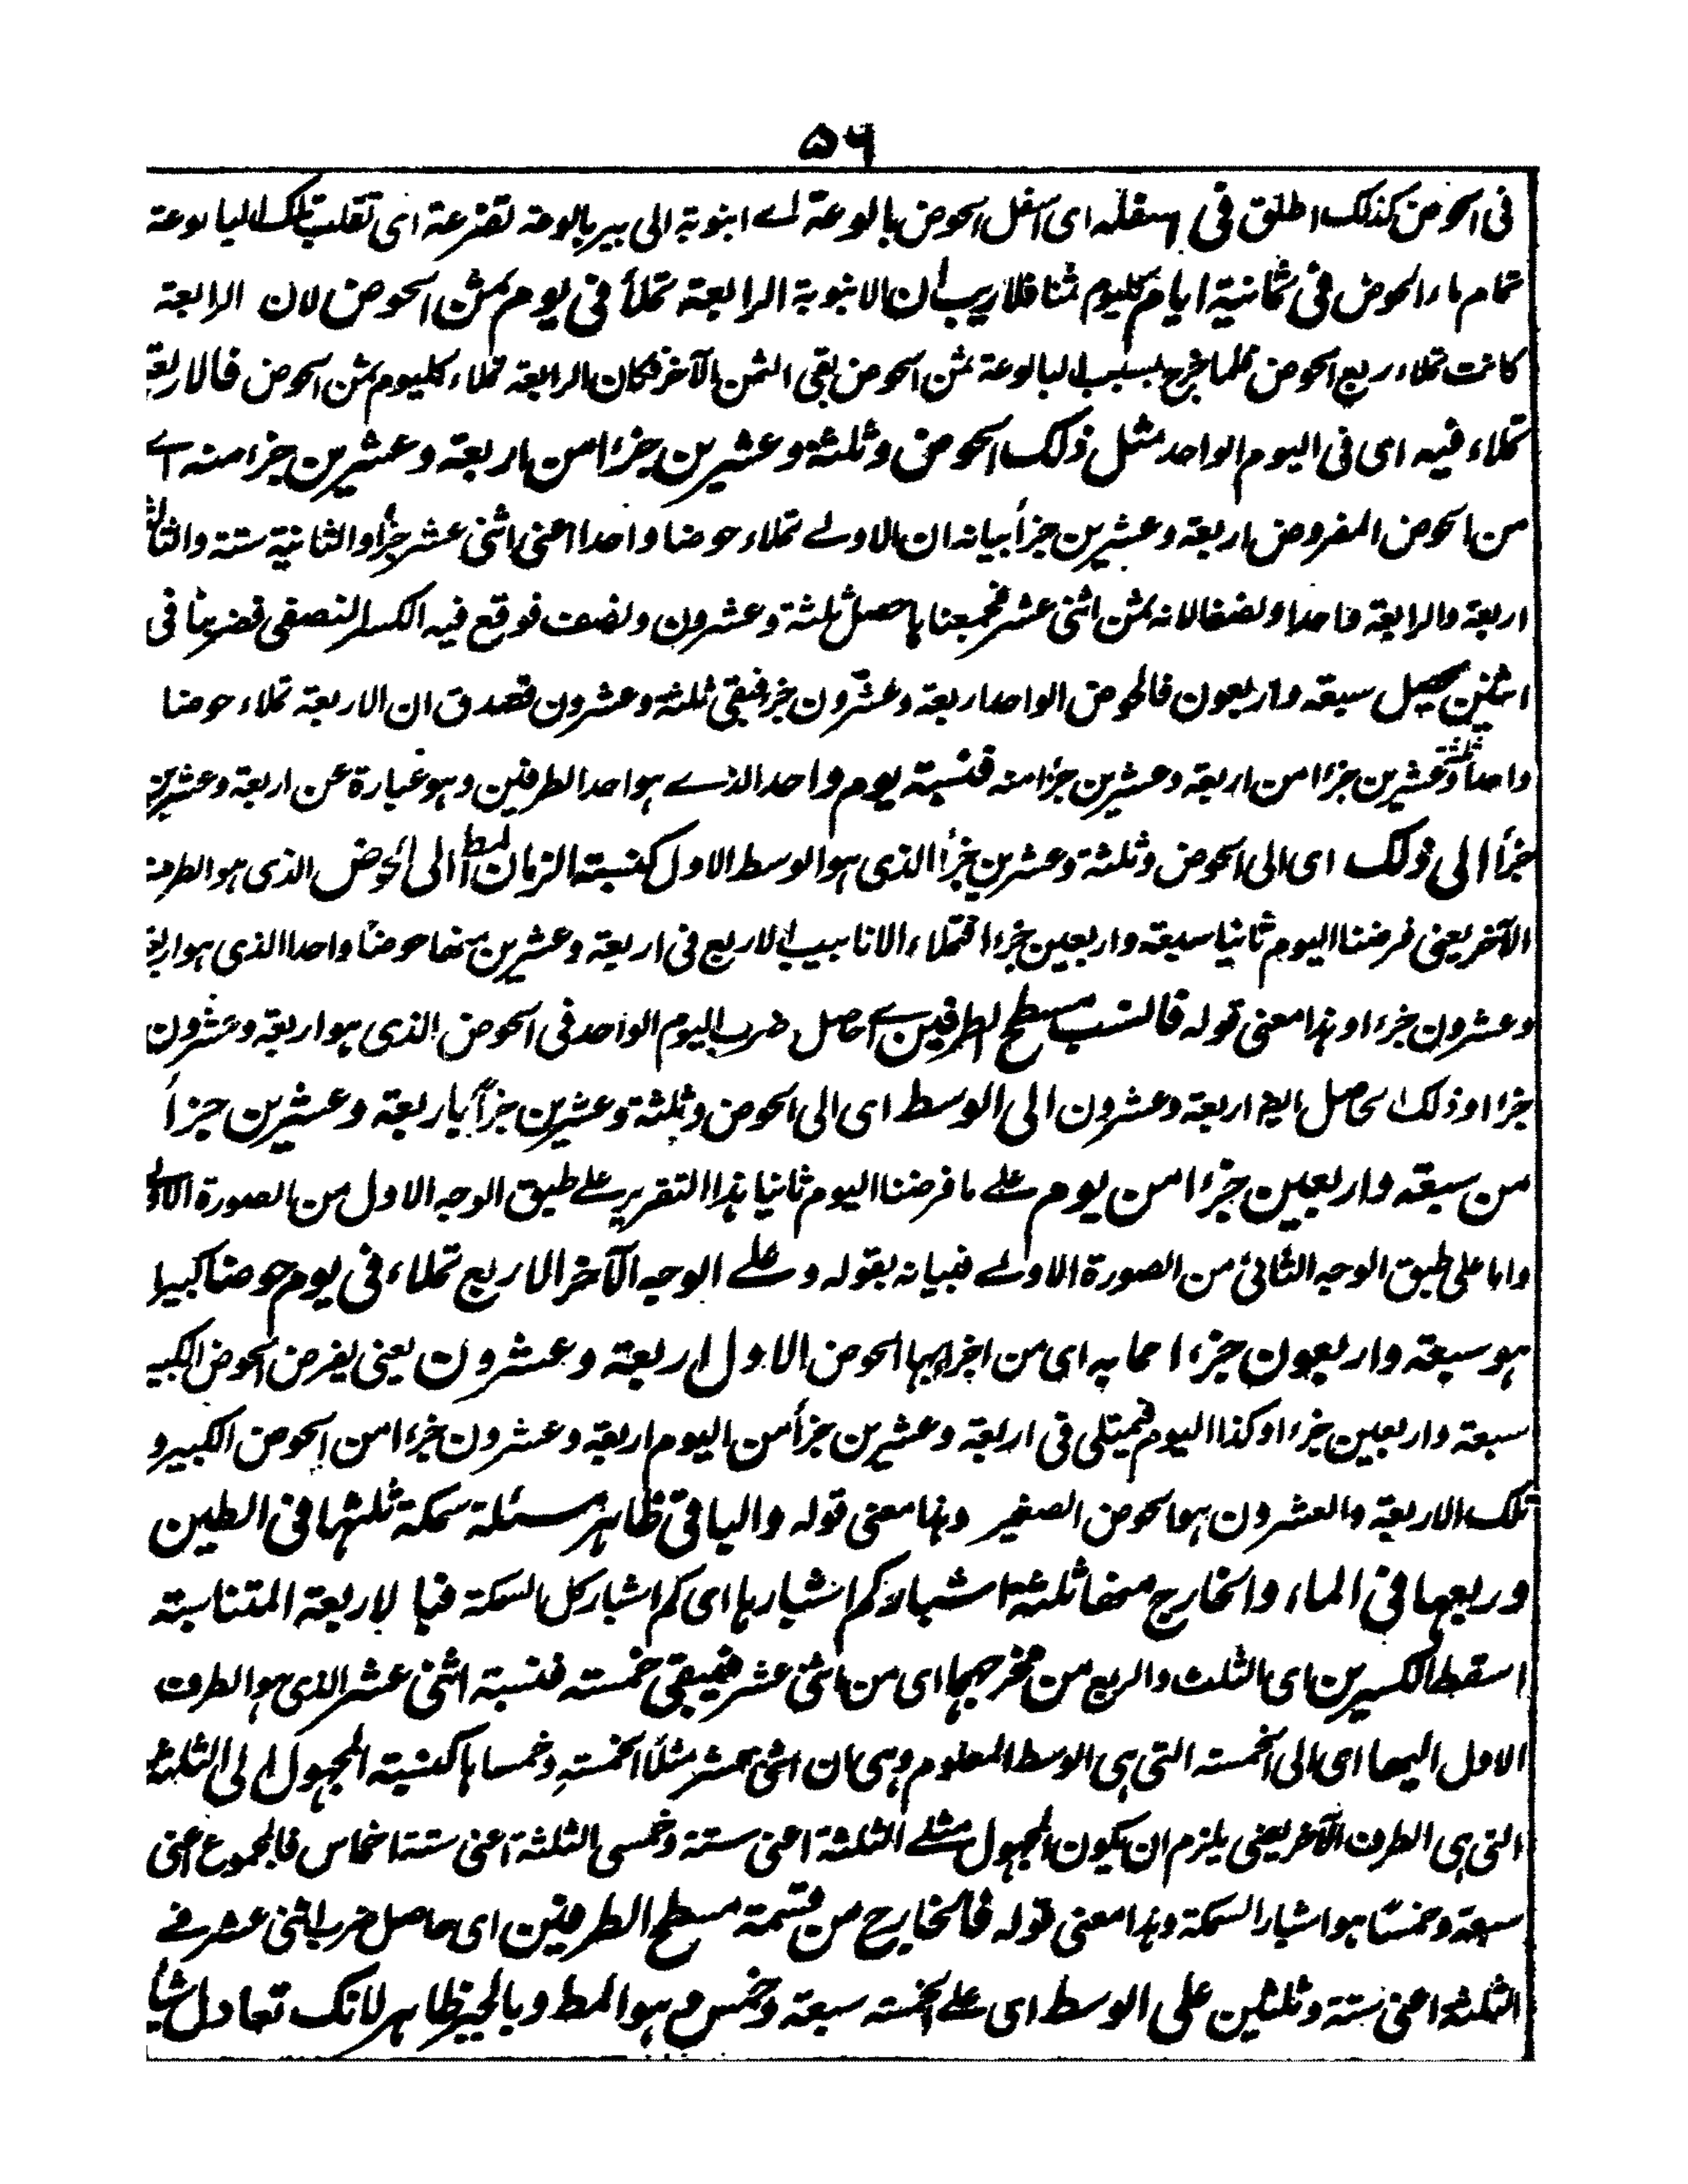 ۵۶
فی الحوض کذلک اطلق فی اسفله ای اسفل الحوض بالوعة اے انبوبة الی بیر بالوعة تفرغة ای تقلب تلک البالوعة
تمام ماء الحوض فی ثمانیة ایام کلیوم ثمنا فلاریب ان الانبوبة الرابعة تملأ فی یوم ثمن الحوض لان الرابعة
کانت تملاء ربع الحوض فلما خرج بسبب البالوعة ثمن الحوض بقی الثمن الآخر فکان الرابعة تملاء کلیوم ثمن الحوض فالاربعة
تملاء فیه ای فی الیوم الواحد مثل ذلک الحوض وثلثة وعشرین جزءا من اربعة وعشرین جزءا منه اے
من الحوض المفروض اربعة وعشرین جزأ بیانه ان الاولے تملاء حوضا واحدا اعنی اثنی عشر جزأ والثانیة ستة والثالثة
اربعة والرابعة واحدا ونصفا لانه ثمن اثنی عشر فجمعناها حصل ثلثة وعشرون ونصف فوقع فیه الکسر النصفی فضربنا فی
اثنین یحصل سبعة واربعون فالحوض الواحد اربعة وعشرون جزء فیبقی ثلثة وعشرون فصدق ان الاربعة تملاء حوضا
واحدا وثلثة وعشرین جزءا من اربعة وعشرین جزءا منه فنسبة یوم واحد الذے هو احد الطرفین وهو عبارة عن اربعة وعشرین
جزأ الی ذلک ای الی الحوض وثلثة وعشرین جزأ الذی هو الوسط الاول کنسبة الزمان المط الی الحوض الذی هو الطرف
الآخر یعنی فرضنا الیوم ثانیا سبعة واربعین جزءا فتملاء الانابیب الاربع فی اربعة وعشرین منها حوضا واحدا الذی هو اربعة
وعشرون جزءا وهذا معنی قوله فالنسب مسطح الطرفین اے حاصل ضرب الیوم الواحد فی الحوض الذی هو اربعة وعشرون
جزءا وذلک الحاصل ایضا اربعة وعشرون الی الوسط ای الی الحوض وثلثة وعشرین جزأ باربعة وعشرین جزأ
من سبعة واربعین جزءا من یوم علے ما فرضنا الیوم ثانیا هذا التقریر علے طبق الوجه الاول من الصورة الاولے
واما علی طبق الوجه الثانی من الصورة الاولے فبیانه بقوله وعلے الوجه الآخر الاربع تملاء فی یوم حوضا کبیرا
هو سبعة واربعون جزءا مما به ای من اجزاء بها الحوض الاول اربعة وعشرون یعنی یفرض الحوض الکبیر
سبعة واربعین جزءا وکذا الیوم فیمتلی فی اربعة وعشرین جزأ من الیوم اربعة وعشرون جزءا من الحوض الکبیر و
تلک الاربعة والعشرون هو الحوض الصغیر وهذا معنی قوله والباقی ظاهر مسئلة سمکة ثلثها فی الطین
وربعها فی الماء والخارج منها ثلثة اشبار کم اشبارها ای کم اشبار کل السمکة فبالاربعة المتناسبة
اسقط الکسرین ای الثلث والربع من مخرجهما ای من اثنی عشر فیبقی خمسة فنسبة اثنی عشر الذی هو الطرف
الاول الیها ای الی الخمسة التی هی الوسط المعلوم وهی ان اثنی عشر مثلا الخمسة وخمساها کنسبة المجهول الی الثلثة
التی هی الطرف الآخر یعنی یلزم ان یکون المجهول مثلے الثلثة اعنی ستة وخمسی الثلثة اعنی ستة اخماس فالمجموع اعنی
سبعة وخمسا هو اشبار السمکة وهذا معنی قوله فالخارج من قسمة مسطح الطرفین ای حاصل ضرب اثنی عشر فے
الثلثة اعنی ستة وثلثین علی الوسط ای علے الخمسة سبعة وخمس وهو المط وبالجبر ظاهر لانک تعادل شیأ